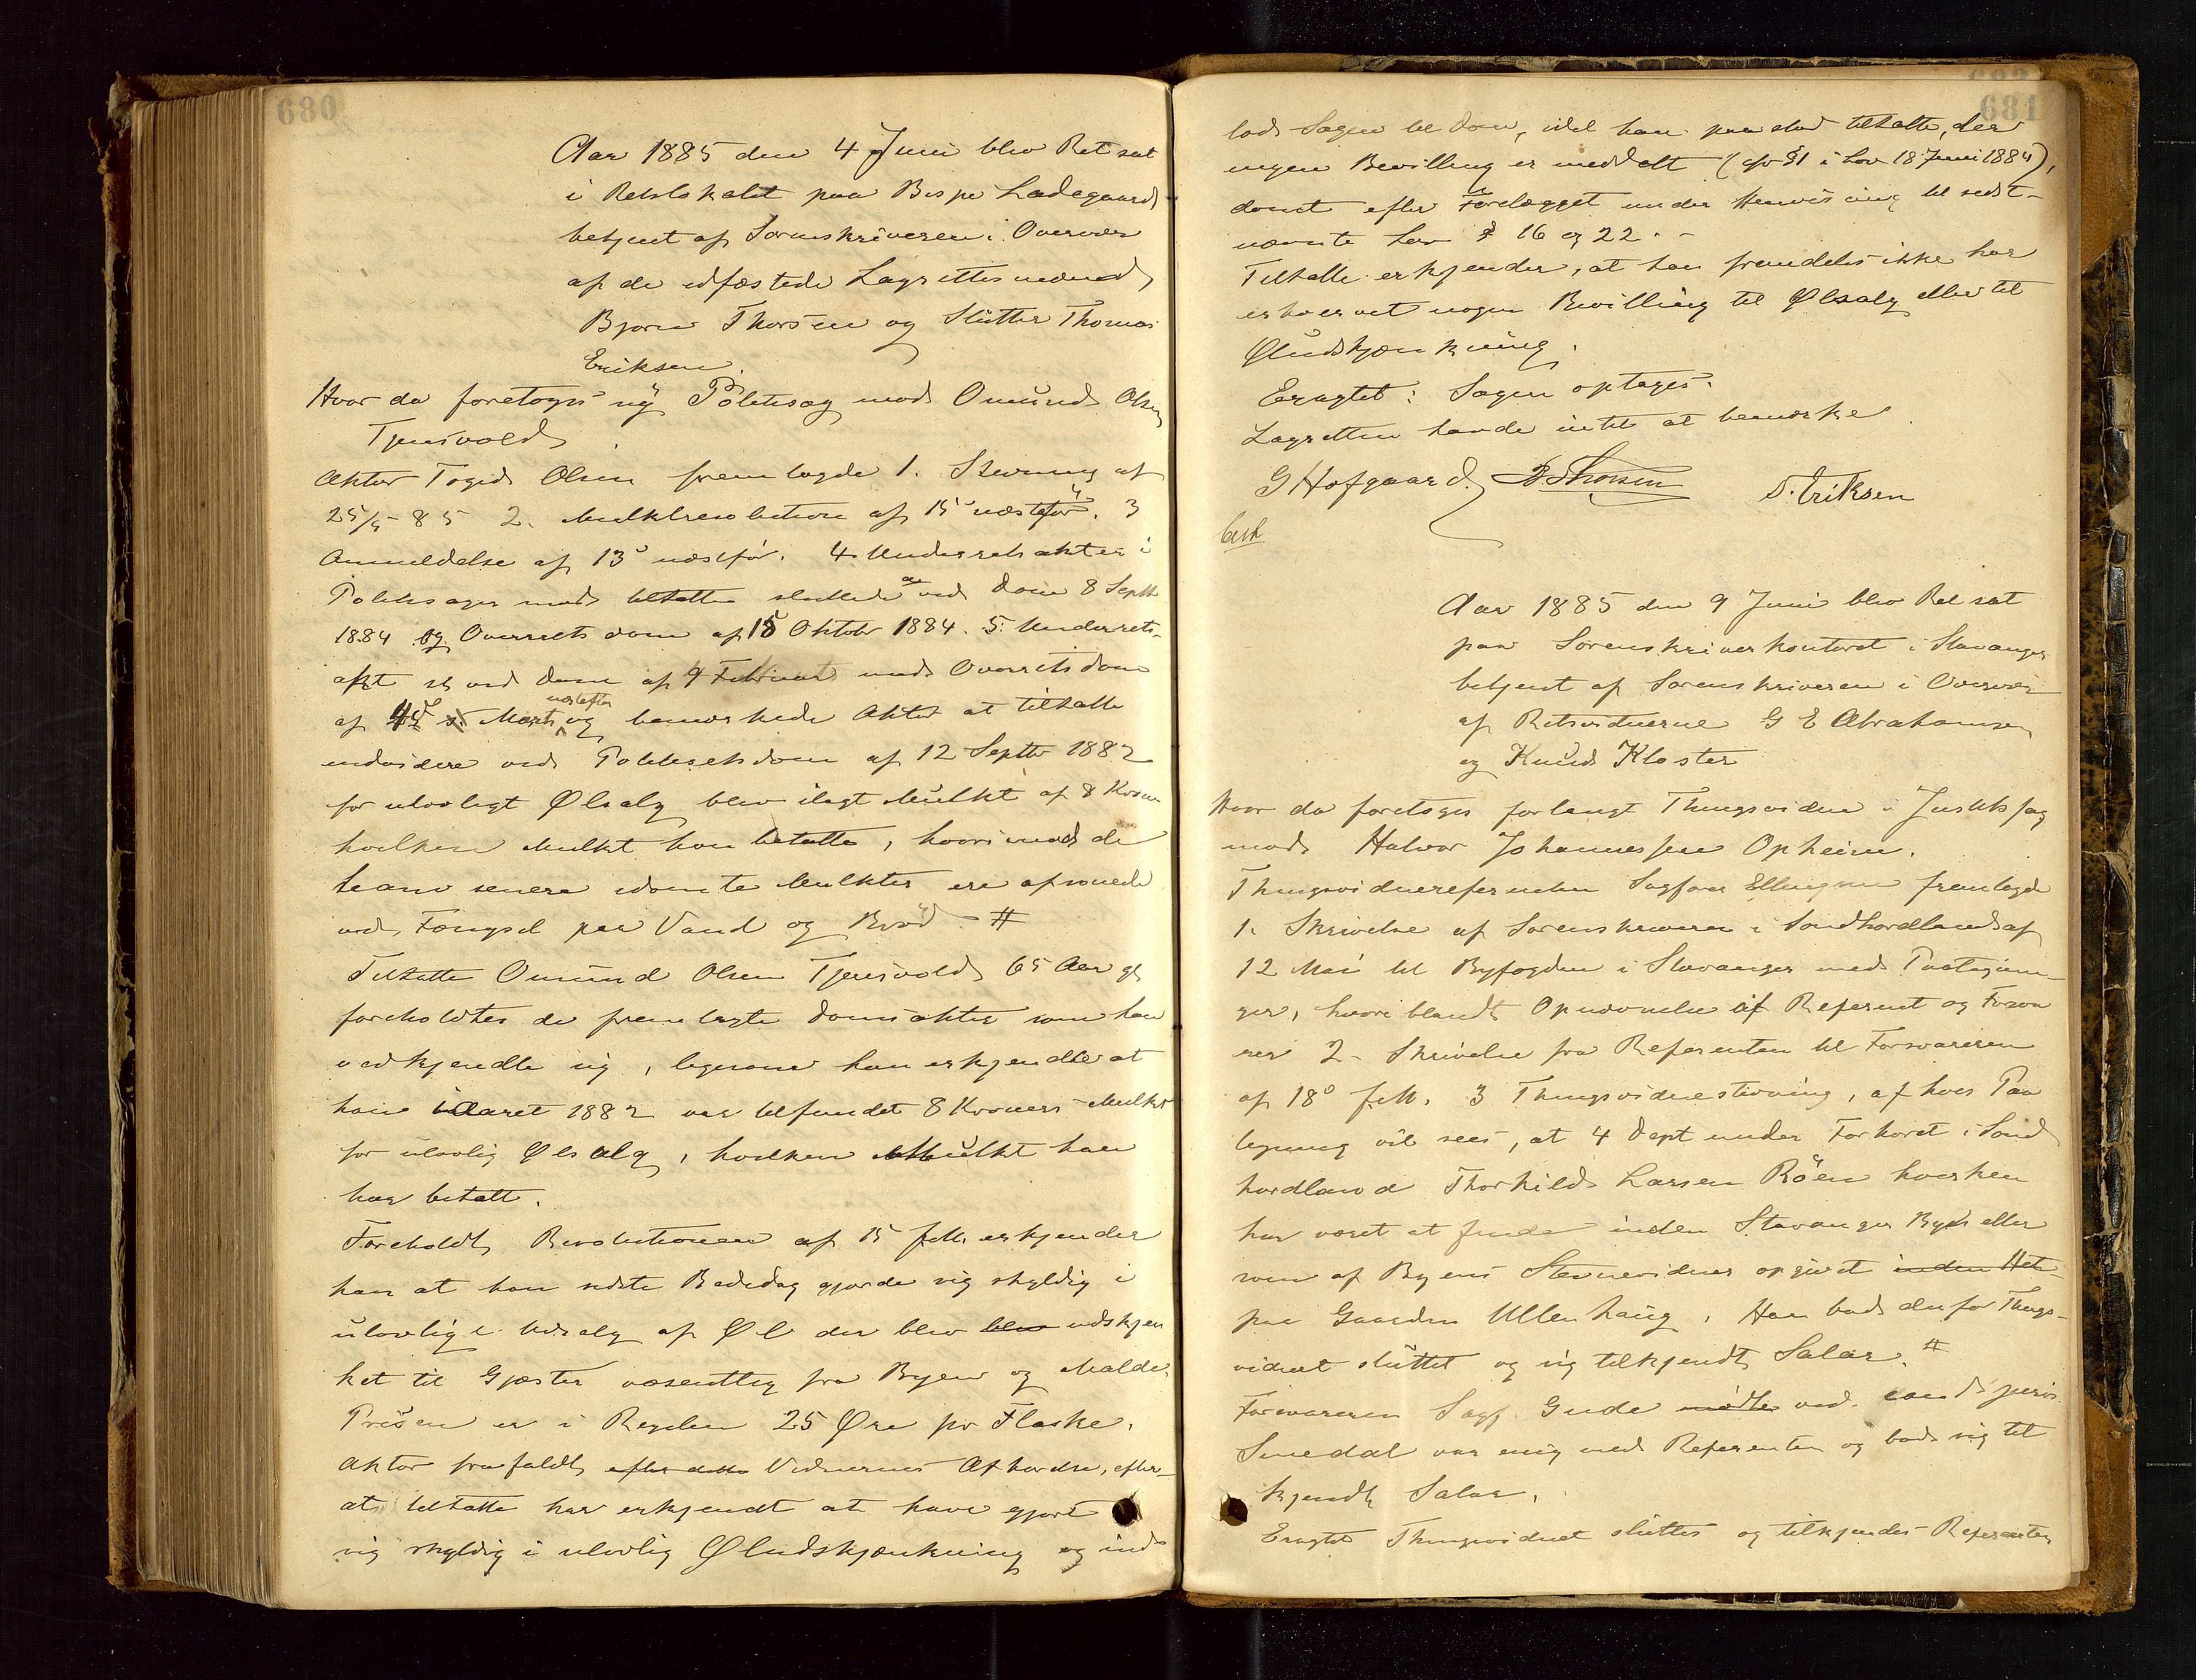 680
Aar 1885 den 4 Juni blev Ret sat
i Retslokalet paa Bispe Ladegaard
betjent af Sorenskriveren i Overvær
af de edfæstede Lagrettesmænd
Bjørn Thorsen og Slütter Thomas
Eriksen.
Hvor da foretoges ny Politisag mod Omund Olsen
Tjensvold
Aktor Foged Olsen fremlagde 1. Stevning af
25/5 85 2. Mulktresolution af 15 næstefør. 3
Anmeldelse af 13de næstfør. 4 Underretsakter i
Politisager mod tiltalte sluttede ved Dom 8 Septbr
1884 og Overretsdom af 18 Oktobr 1884. 5. Underrets-
akt ved Dom af 9 Februar med Overretsdom
af Marts næstefter og bemærkede Aktor at tiltalte
endvidere ved Politiretsdom af 12 Septbr 1882
for ulovligt Ølsalg blev ilagt Mulkt af 8 Kroner
hvilken Mulkt han betalte, hvorimod de
ham senere idømte Mulkter ere afsonede
ved Fængsel paa Vand og Brød #
Tiltalte Omund Olsen Tjensvold 65 Aar gl
foreholdtes de fremlagte Domsakter som han
vedkjendte sig, ligesom han erkjendte at
han i Aaret 1882 var tilfundet 8 Kroners Mulkt
for ulovlig Ølsalg, hvilken Mulkt han
har betalt.
Foreholdt Resolutionen af 15 f.M. erkjender
han at han sidste Bededag gjorde sig skyldig i
ulovlig Udsalg af Øl der blev blev udskjen
ket til Gjæster væsentlig fra Byen og Malde
Prisen er i Regelen 25 Øre pr Flaske.
Aktor frafaldt efter dette Vidnernes Afhørelse, efter-
at tiltalte har erkjendt at have gjort
sig skyldig i ulovlig Øludskjænkning og ind
681
lod Sagen til Dom, idet han paastod tiltalte, der
ingen Bevilling er meddelt (cfr § 1 i Lov 18 Juni 1884),
dømt efter Forelægget under Henvisning til sidst-
nævnte Lov § 16 og 22.
Tiltalte erkjender, at han fremdeles ikke har
erhvervet nogen Bevilling til Ølsalg eller til
Øludskjænkning.
Eragtet: Sagen optages.
Lagretten havde intet at bemærke
G Hofgaard B. Thorsen T. Eriksen
Aar 1885 den 9 Juni blev Ret sat
paa Sorenskriverkontoret i Stavanger
betjent af Sorenskriveren i Overvær
af Retsvidnerne G E Abrahamsen
og Knud Kloster
Hvor da foretoges forlangt Thingsvidne i Justitssag
mod Halvor Johannessen Opheim.
Thingsvidnereferenten Sagfører Ellingsen fremlagde
1. Skrivelse af Sorenskriveren i Søndhordland af
12 Mai til Byfogden i Stavanger med Paategnin-
ger, hvoriblandt Opnævnelse af Referent og Forsva
rer 2. Skrivelse fra Referenten til Forsvareren
af 18de f.M. 3 Thingsvidnestevning, af hvis Paa
tegning vil sees, at 4 Dept under Forhøret i Sønd
hordland Thorkild Larsen Røen hverken
har været at finde inden Stavanger By eller
som af Byens Stevnevidner opgivet inden Het-
paa Gaarden Ullenhaug. Han bad derfor Things-
vidnet sluttet og sig tilkjendt Salar. #
Forsvareren Sagf. Gude mødte ved cand. juris
Smedal var enig med Referenten og bad sig til
kjendt Salar.
Eragtet Thingsvidnet sluttes og tilkjendes Referenten